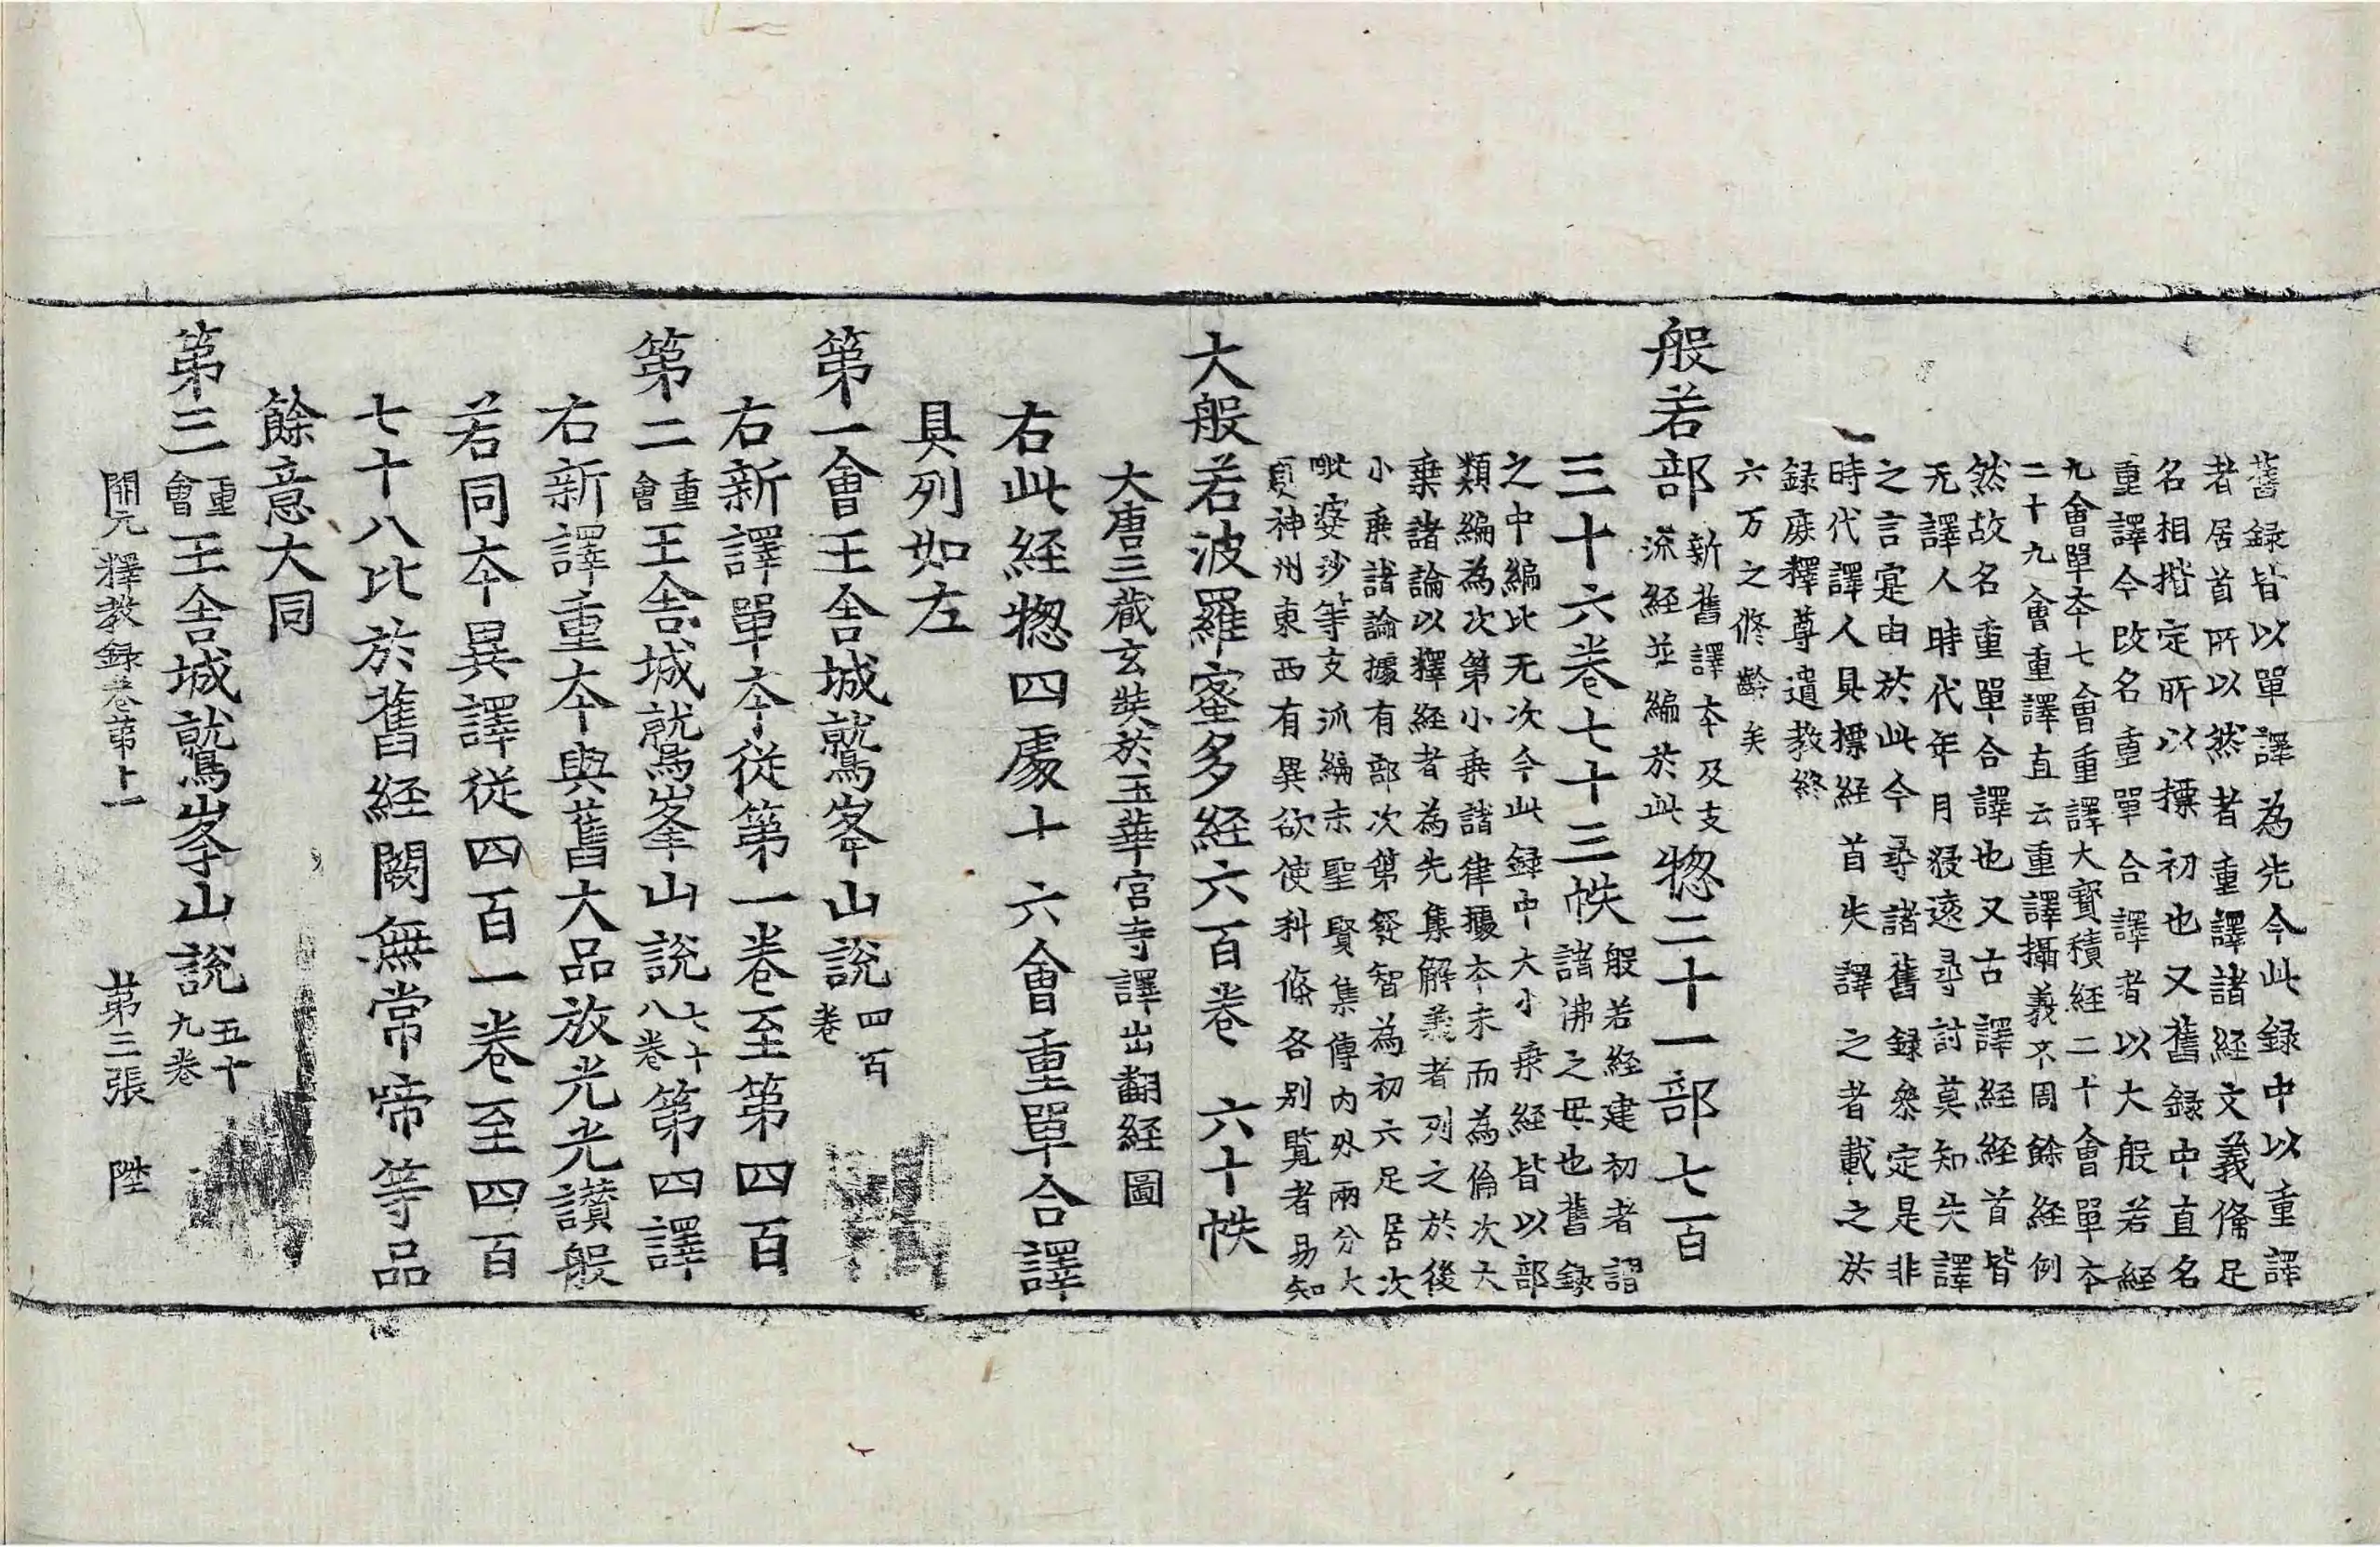 舊録皆以單譯為先今此録中以重譯
者居首所以然者重譯諸経文義俻足
名相揩定所以摽初也又舊録中直名
重譯今改名重單合譯者以大般若経
九會單夲七會重譯大寳積経二十會單夲
二十九會重譯直云重譯攝義不周餘経例
然故名重單合譯也又古譯経経首皆
无譯人時代年月𣸪逺尋討莫知失譯
之言寔由於此今尋諸舊録叅定是非
時代譯人具摽経首失譯之者載之於
録庻釋尊遺教終
六万之修齡矣
般若部新舊譯夲及支𣲖経並編於此惣二十一部七百
三十六卷七十三帙般若経建初者謂諸沸之母也舊録
之中編比无次今此録中大小乗経皆以部
類編為次第小乗諸律據夲末而為倫次大
乗諸論以釋経者為先集解義者列之於後
小乗諸論據有部次第發智為初六足居次
毗婆沙等支𣲖編末聖賢集傳内外兩分大
夏神州東西有異欲使科條各别覧者易知
大般若波羅蜜多経六百卷　六十帙
大唐三蔵玄奘於玉華宮寺譯出翻経圖
右此経惣四處十六會重單合譯
具列如左
第一會王舎城鷲峯山説四百卷
右新譯單夲從第一卷至第四百
第二會重王舎城鷲峯山説七十八卷第四譯
右新譯重夲與舊大品放光光讃般
若同夲異譯從四百一卷至四百
七十八比於舊経闕無常啼等品
餘意大同
第三會重王舎城鷲峯山説五十九卷
開元釋教録卷第十一　第三張　陞